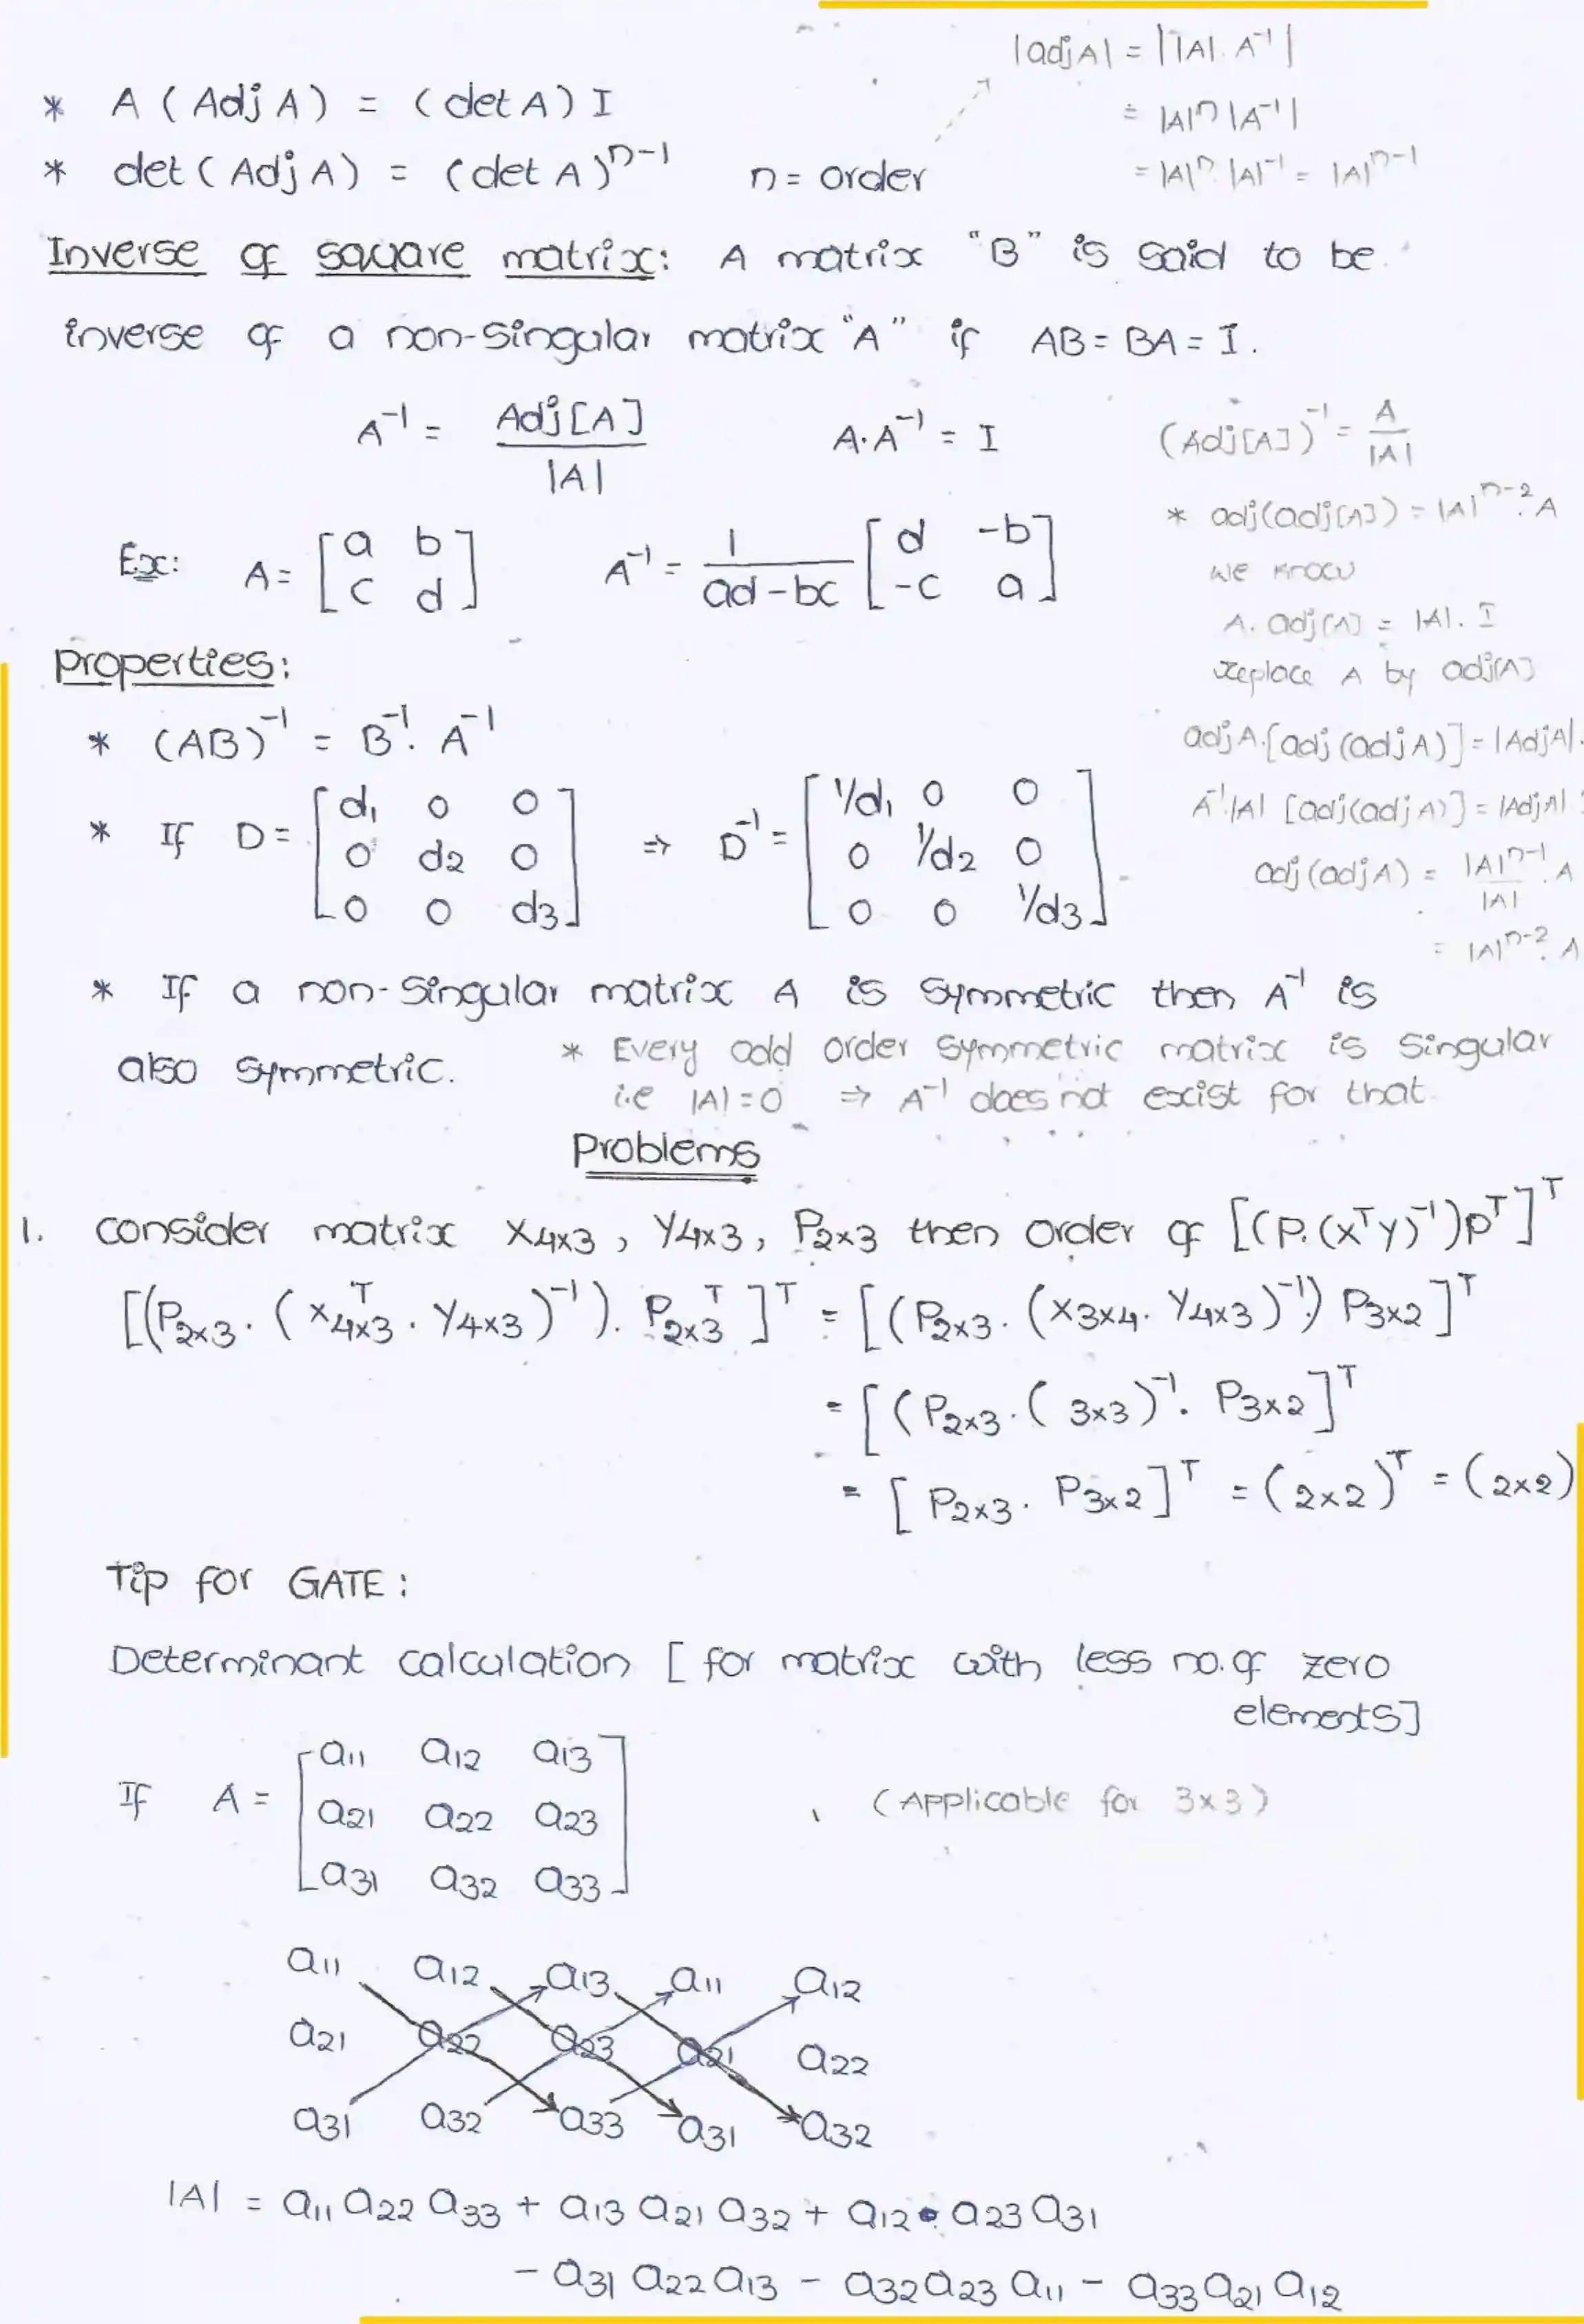 |adj A| = ||A|. A⁻¹|
* A (Adj A) = (det A) I
= |A|ⁿ |A⁻¹|
* det (Adj A) = (det A)ⁿ⁻¹ n = order
= |A|ⁿ. |A|⁻¹ = |A|ⁿ⁻¹
Inverse of square matrix: A matrix "B" is said to be
inverse of a non-singular matrix "A" if AB = BA = I.
A⁻¹ = Adj[A] / |A| A.A⁻¹ = I (Adj[A])⁻¹ = A / |A|
* adj(adj[A]) = |A|ⁿ⁻². A
Ex: A = [a b; c d] A⁻¹ = 1 / ad - bc [d -b; -c a]
we know
A. adj[A] = |A|. I
Properties:
replace A by adj[A]
* (AB)⁻¹ = B⁻¹. A⁻¹
adj A.[adj (adj A)] = |Adj A|.
* If D = [d₁ 0 0; 0 d₂ 0; 0 0 d₃] ⇒ D⁻¹ = [1/d₁ 0 0; 0 1/d₂ 0; 0 0 1/d₃]
A⁻¹.|A| [adj(adj A)] = |Adj A|.
adj (adj A) = |A|ⁿ⁻¹ / |A| . A
= |A|ⁿ⁻². A
* If a non-singular matrix A is symmetric then A⁻¹ is
also symmetric.
* Every odd order symmetric matrix is singular
i.e |A| = 0 ⇒ A⁻¹ does not exist for that.
Problems
1. consider matrix X₄ₓ₃, Y₄ₓ₃, P₂ₓ₃ then order of [(P.(XᵀY)⁻¹)Pᵀ]ᵀ
[(P₂ₓ₃. (X₄ₓ₃ᵀ. Y₄ₓ₃)⁻¹). P₂ₓ₃ᵀ]ᵀ = [(P₂ₓ₃. (X₃ₓ₄. Y₄ₓ₃)⁻¹) P₃ₓ₂]ᵀ
= [(P₂ₓ₃. (3x3)⁻¹. P₃ₓ₂]ᵀ
= [P₂ₓ₃. P₃ₓ₂]ᵀ = (2x2)ᵀ = (2x2)
Tip for GATE:
Determinant calculation [for matrix with less no. of zero
elements]
If A = [a₁₁ a₁₂ a₁₃; a₂₁ a₂₂ a₂₃; a₃₁ a₃₂ a₃₃] (Applicable for 3x3)
a₁₁ a₁₂ a₁₃ a₁₁ a₁₂
a₂₁ a₂₂ a₂₃ a₂₁ a₂₂
a₃₁ a₃₂ a₃₃ a₃₁ a₃₂
|A| = a₁₁ a₂₂ a₃₃ + a₁₃ a₂₁ a₃₂ + a₁₂ a₂₃ a₃₁
- a₃₁ a₂₂ a₁₃ - a₃₂ a₂₃ a₁₁ - a₃₃ a₂₁ a₁₂